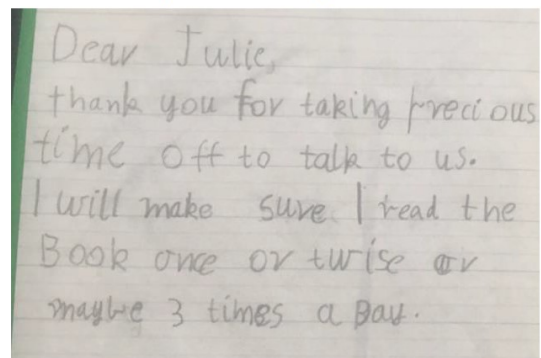 Dear Julie,
thank you for taking precious
time off to talk to us.
I will make sure I read the
Book once or twise or
maybe 3 times a Day.